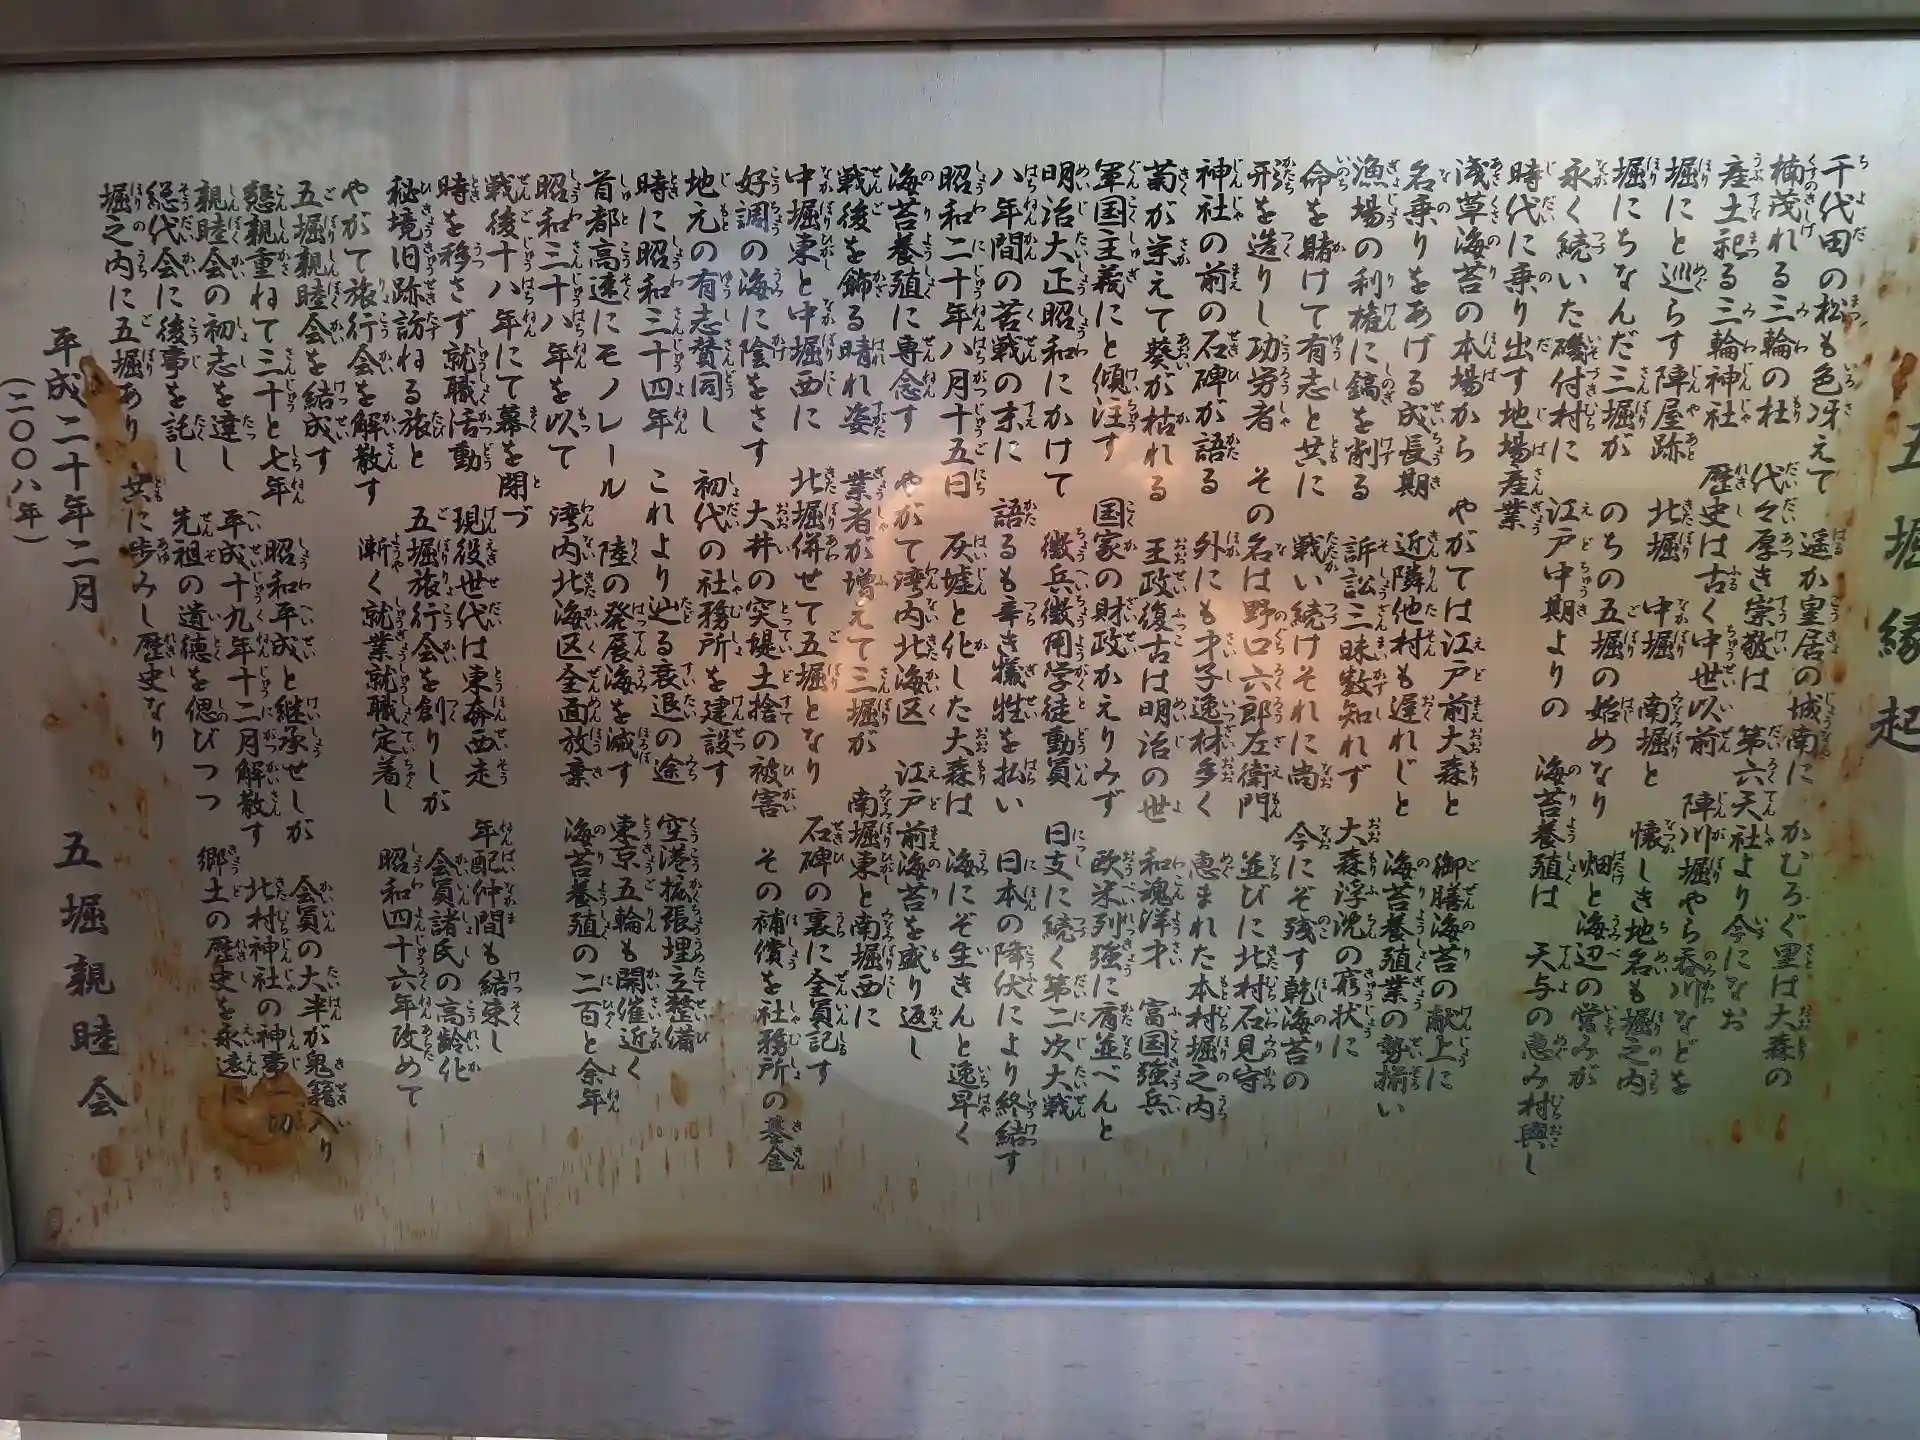 五堀縁起
千代田の松も色冴えて 遥か皇居の城南に かむろぐ里は大森の
楠茂れる三輪の杜 代々厚き崇敬は 第六天社より今になお
産土祀る三輪神社 歴史は古く中世以前 陣川堀やら呑川などを
堀にと巡らす陣屋跡 北堀 中堀 南堀と 懐しき地名も堀之内
堀にちなんだ三堀が のちの五堀の始めなり 畑と海辺の営みが
永く続いた磯付村に 江戸中期よりの 海苔養殖は 天与の恵み村興し
時代に乗り出す地場産業
浅草海苔の本場から やがては江戸前大森と 御膳海苔の献上に
名乗りをあげる成長期 近隣他村も遅れじと 海苔養殖業の勢揃い
漁場の利権に鎬を削る 訴訟三昧数知れず 大森浮沈の窮状に
命を賭けて有志と共に 戦い続けそれに尚 今にぞ残す乾海苔の
形を造りし功労者 その名は野口六郎左衛門 並びに北村石見守
神社の前の石碑が語る 外にも才子逸材多く 恵まれた本村堀之内
菊が栄えて葵が枯れる 王政復古は明治の世 和魂洋才 富国強兵
軍国主義にと傾注す 国家の財政かえりみず 欧米列強に肩並べんと
明治大正昭和にかけて 徴兵徴用学徒動員 日支に続く第二次大戦
八年間の苦戦の末に 語るも辛き犠牲を払い 日本の降伏により終結す
昭和二十年八月十五日 灰墟と化した大森は 海にぞ生きんと逸早く
海苔養殖に専念す やがて湾内北海区 江戸前海苔を盛り返し
戦後を飾る晴れ姿 業者が増えて三堀が 南堀東と南堀西に
中堀東と中堀西に 北堀併せて五堀となり 石碑の裏に全員記す
好調の海に陰をさす 大井の突堤土捨の被害 その補償を社務所の基金
地元の有志賛同し 初代の社務所を建設す
時に昭和三十四年 これより辿る衰退の途 空港拡張埋立整備
首都高速にモノレール 陸の発展海を滅す 東京五輪も開催近く
昭和三十八年を以て 湾内北海区全面放棄 海苔養殖の二百と余年
戦後十八年にて幕を閉づ
時を移さず就職活動 現役世代は東奔西走 年配仲間も結束し
秘境旧跡訪ねる旅と 五堀旅行会を創りしが 会員諸氏の高齢化
やがて旅行会を解散す 漸く就業就職定着し 昭和四十六年改めて
五堀親睦会を結成す
懇親重ねて三十と七年 昭和平成と継承せしが 会員の大半が鬼籍入り
親睦会の初志を達し 平成十九年十二月解散す 北村神社の神事一切
総代会に後事を託し 先祖の遺徳を偲びつつ 郷土の歴史を永遠に
堀之内に五堀あり 共に歩みし歴史なり
平成二十年二月 五堀親睦会
(二〇〇八年)